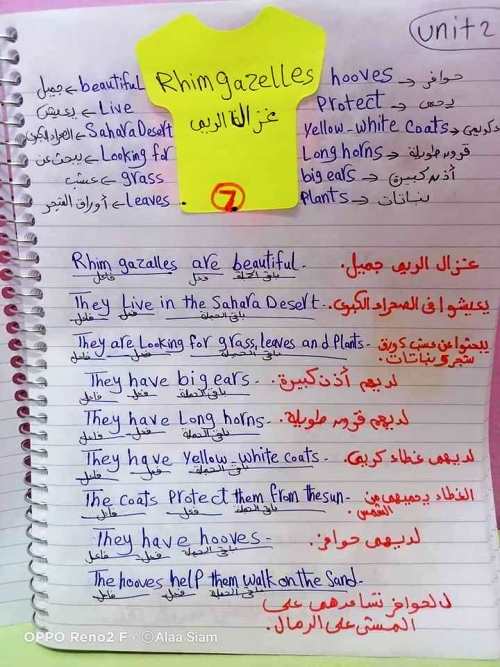 unit 2
Rhim gazelles
غزالة الريم
7
beautiful ← جميل
Live ← يعيش
Sahara Desert ← الصحراء الكبرى
Looking for ← يبحث عن
grass ← عشب
leaves ← أوراق الشجر
hooves → حوافر
Protect → يحمى
Yellow-white coats →
Long horns → قرون طويلة
big ears → أذن كبيرة
Plants → نباتات
Rhim gazalles are beautiful. غزال الريم جميل.
فاعل فعل باقى الجملة
They Live in the Sahara Desert. يعيشوا فى الصحراء الكبرى.
فاعل فعل باقى الجملة
They are Looking for grass, leaves and Plants. يبحثوا عن عشب وورق
شجر ونباتات.
فاعل فعل باقى الجملة
They have big ears. لديهم أذن كبيرة.
فاعل فعل باقى الجملة
They have Long horns. لديهم قرون طويلة.
فاعل فعل باقى الجملة
They have Yellow-white coats. لديهم غطاء كريمى.
فاعل فعل باقى الجملة
The coats Protect them from the sun. الغطاء يحميهم من
الشمس.
فاعل فعل باقى الجملة
They have hooves. لديهم حوافر.
فاعل فعل باقى الجملة
The hooves help them walk on the Sand.
فاعل فعل باقى الجملة
الحوافر تساعدهم على
المشى على الرمال.
OPPO Reno2 F · ©Alaa Siam